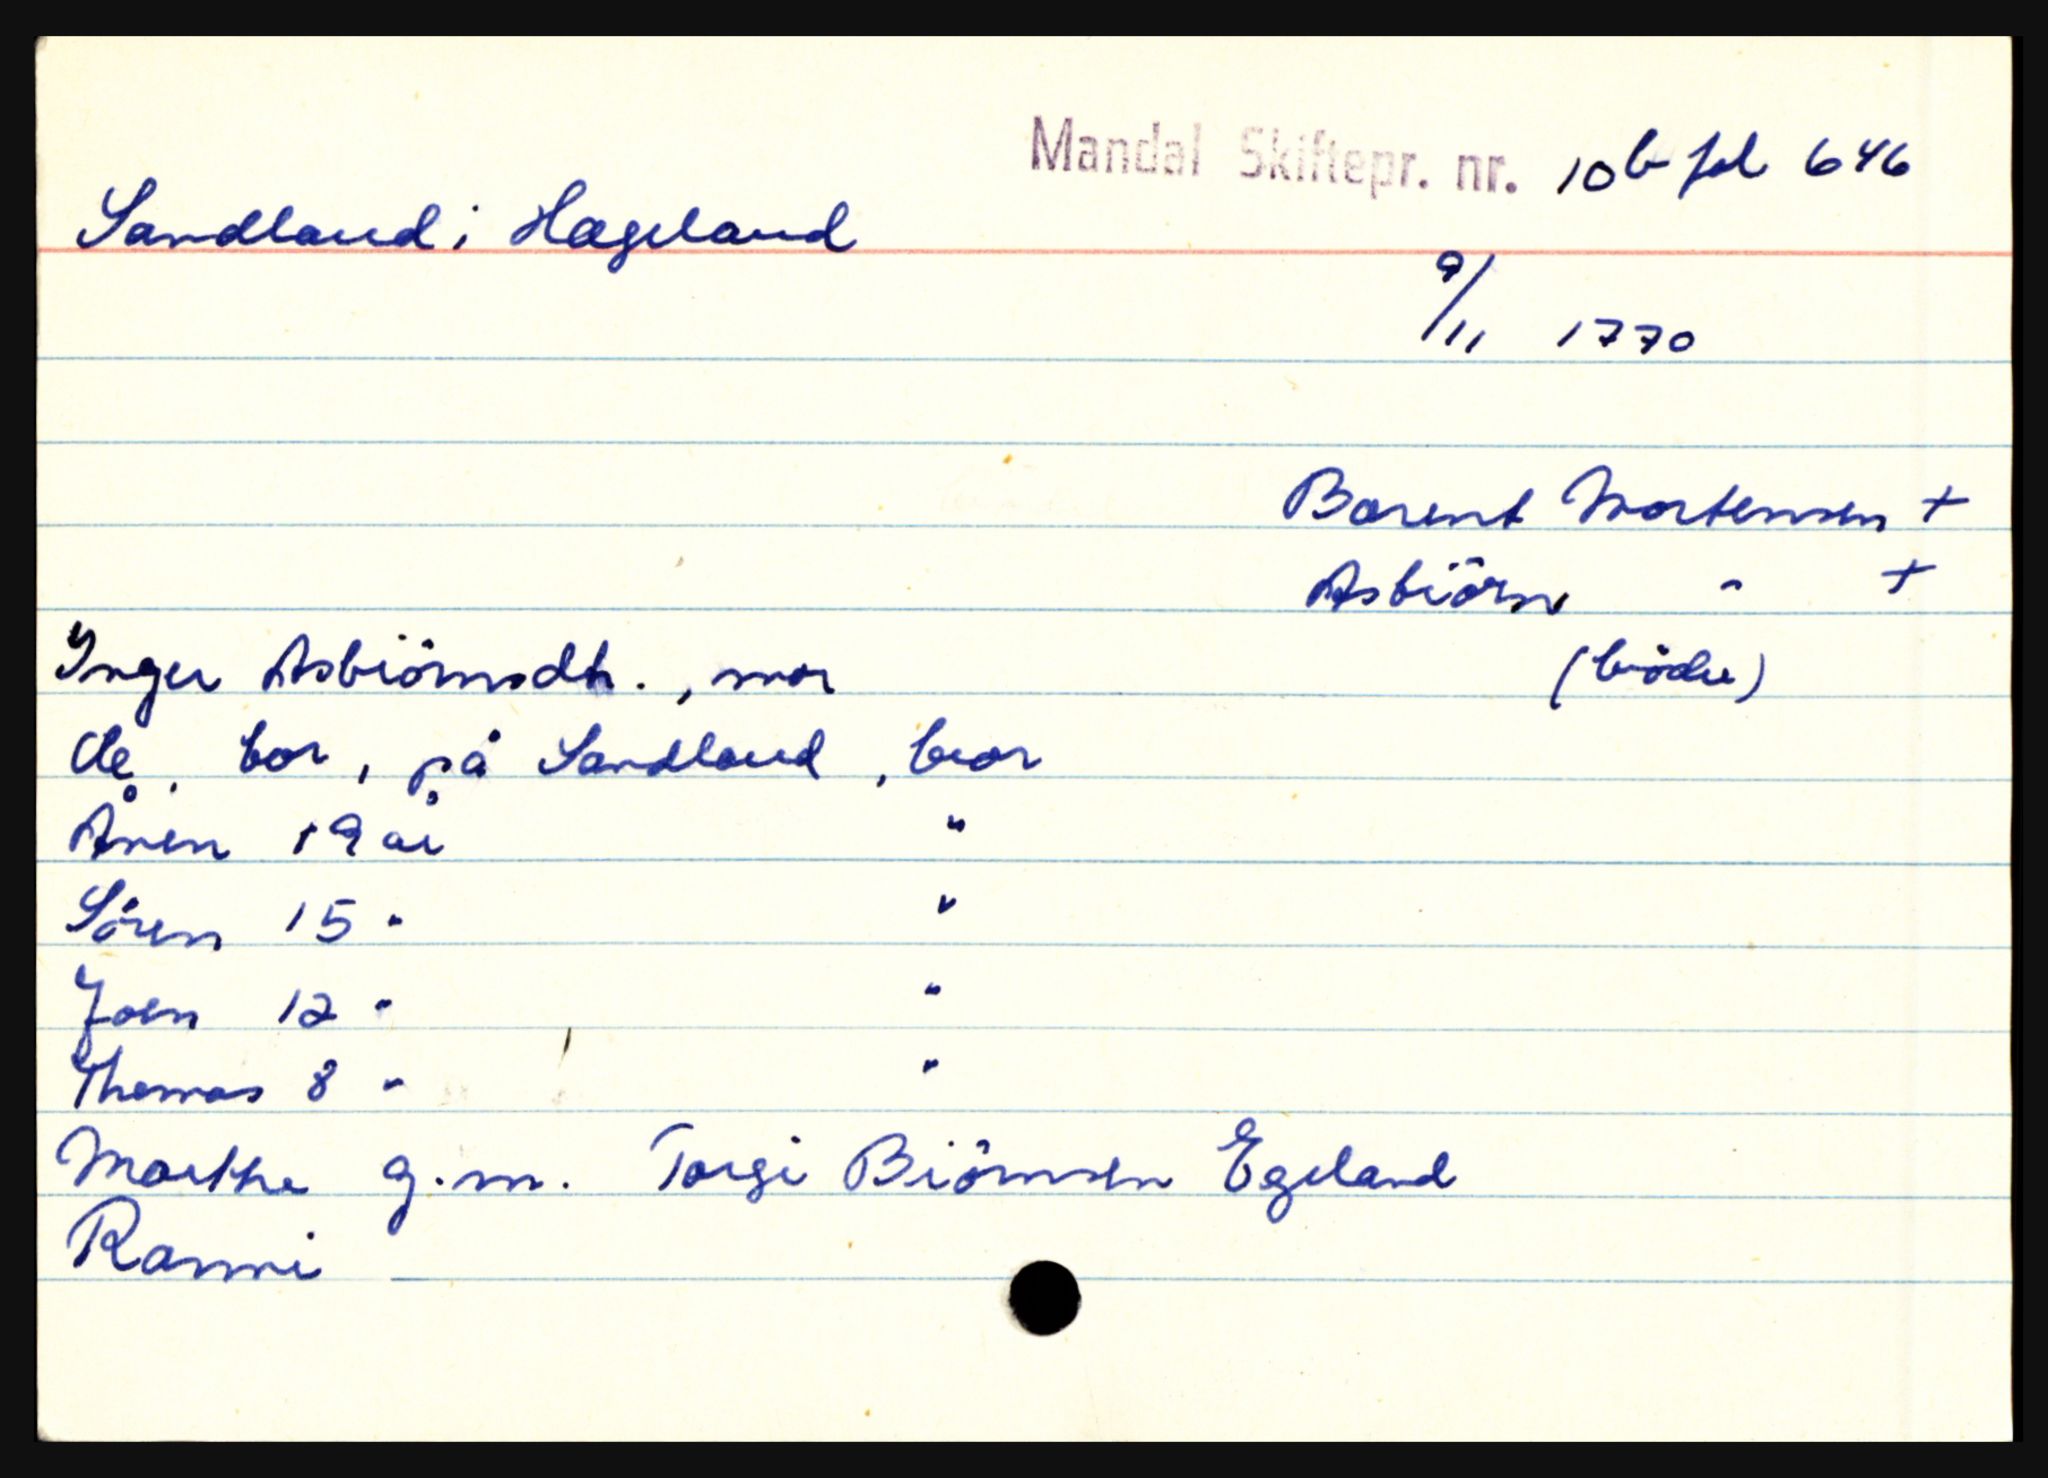 Mandal Skiftepr. nr. 10 b fol 646
Sandland i Hægeland
9/11 1770
Barent Mortensen +
Asbiörn " +
(brödre)
Inger Asbiörnsdtr., mor
Ole, bor, på Sandland, bror
Ånen 19 år "
Sören 15 " "
Joen 12 " "
Thomas 8 " "
Marthe g.m. Torgi Biörnsen Egeland
Ranni